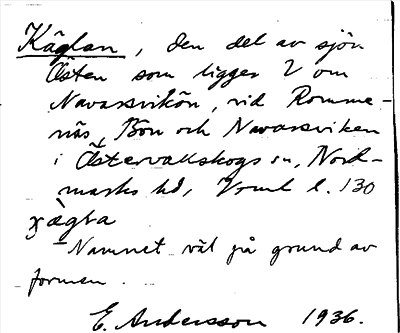 Käglan, den del av sjön
Östen som ligger V om
Navarsvikön, vid Romme-
näs, Bön och Navarsviken
i Östervallskogs sn, Nord-
marks hd, Vrml l. 130
Namnet väl på grund av
formen.
E. Andersson 1936.